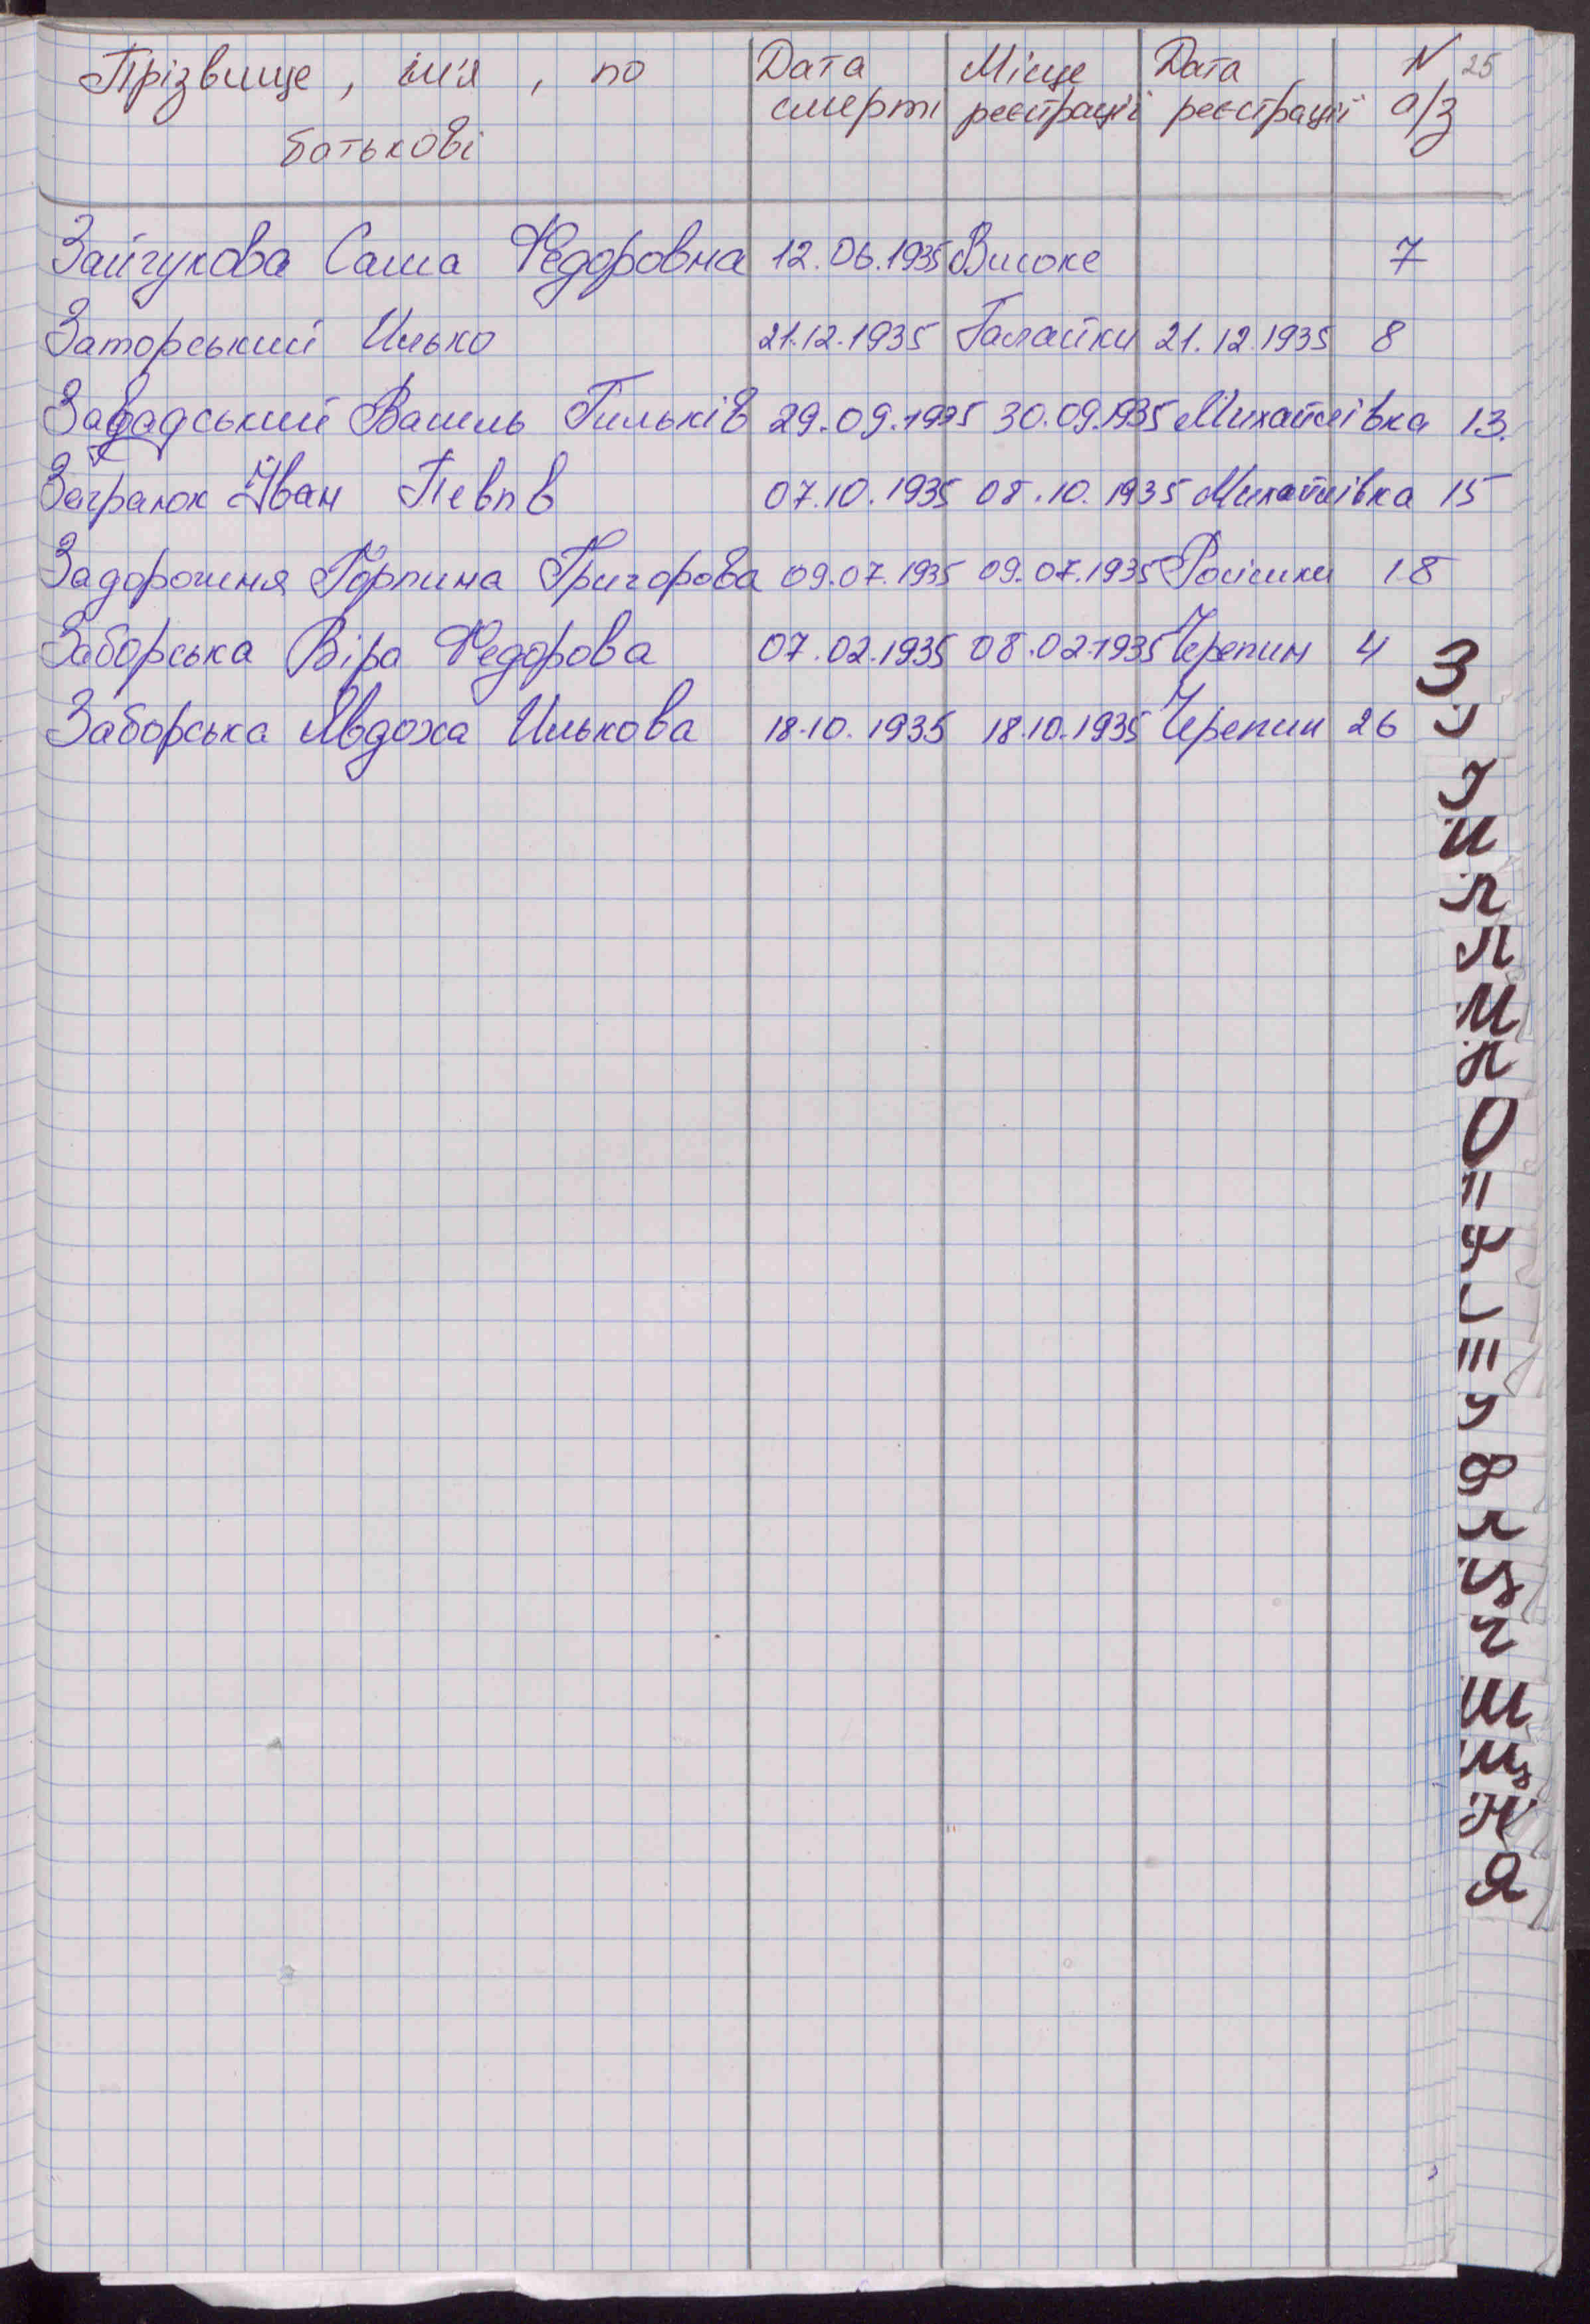 Прізвище, ім'я, по Дата Місце Дата N 25
батькові смерті реєстрації реєстрації а/з
Зайчукова Саша Федоровна 12.06.1935 Високе 7
Заторський Илько 21.12.1935 Галайки 21.12.1935 8
Завадський Василь Гильків 29.09.1935 30.09.1935 Михайлівка 13.
Іван 07.10.1935 08.10.1935 Михайлівка 15
Задорожня Горпина Григорова 09.07.1935 09.07.1935 Росішки 18
Заборська Віра Федорова 07.02.1935 08.02.1935 Черепин 4
Заборська Явдоха Илькова 18.10.1935 18.10.1935 Черепин 26
З
И
М
О
У
Ф
Ч
Ш
Щ
Ю
Я